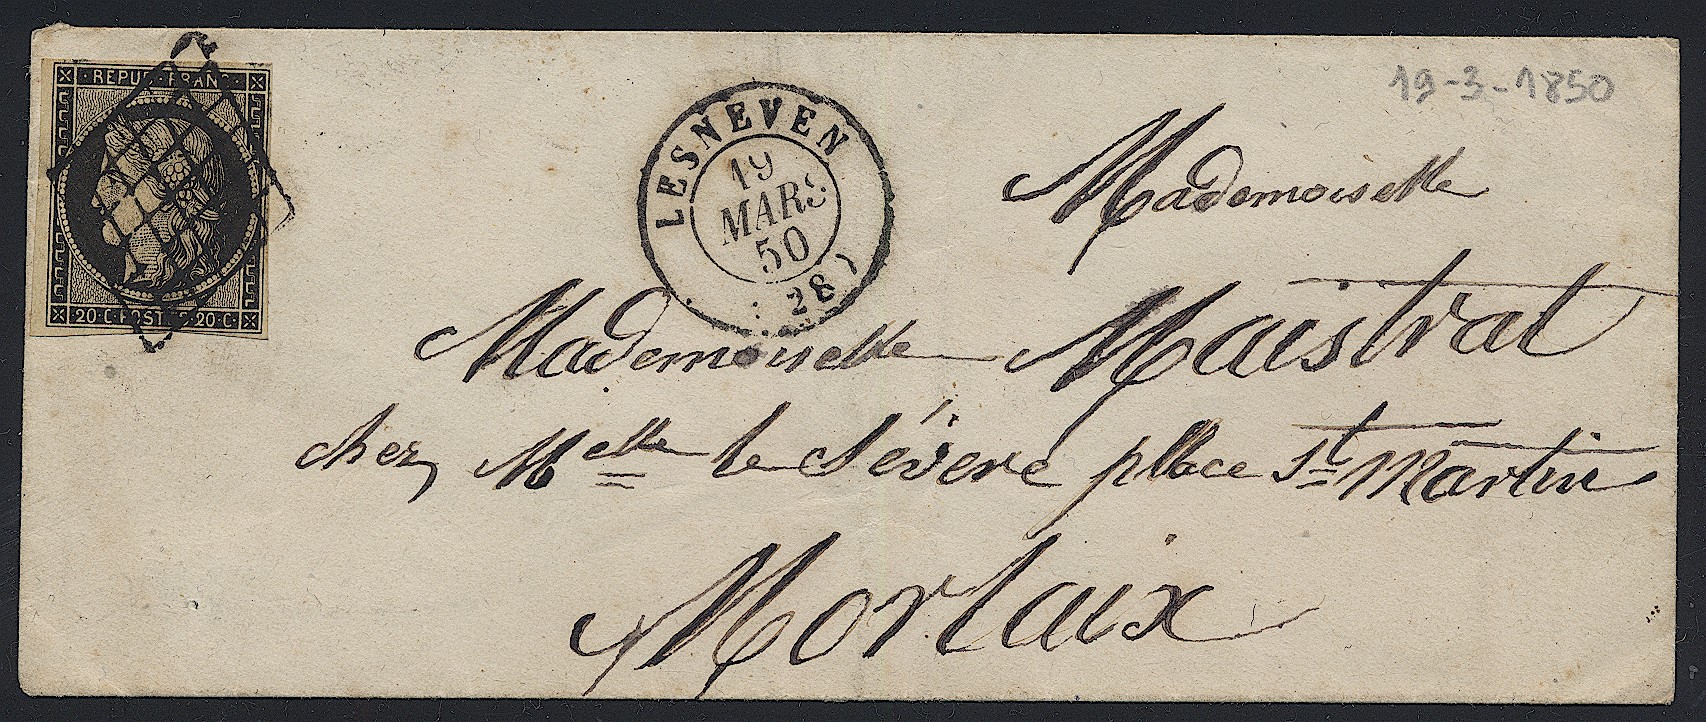 REPUB·FRANC·
20·C·POSTES·20·C·
LESNEVEN
19
MARS
50
(28)
19-3-1850
Mademoiselle
Mademoiselle Maistral
chez Melle le Sévère place St Martin
Morlaix